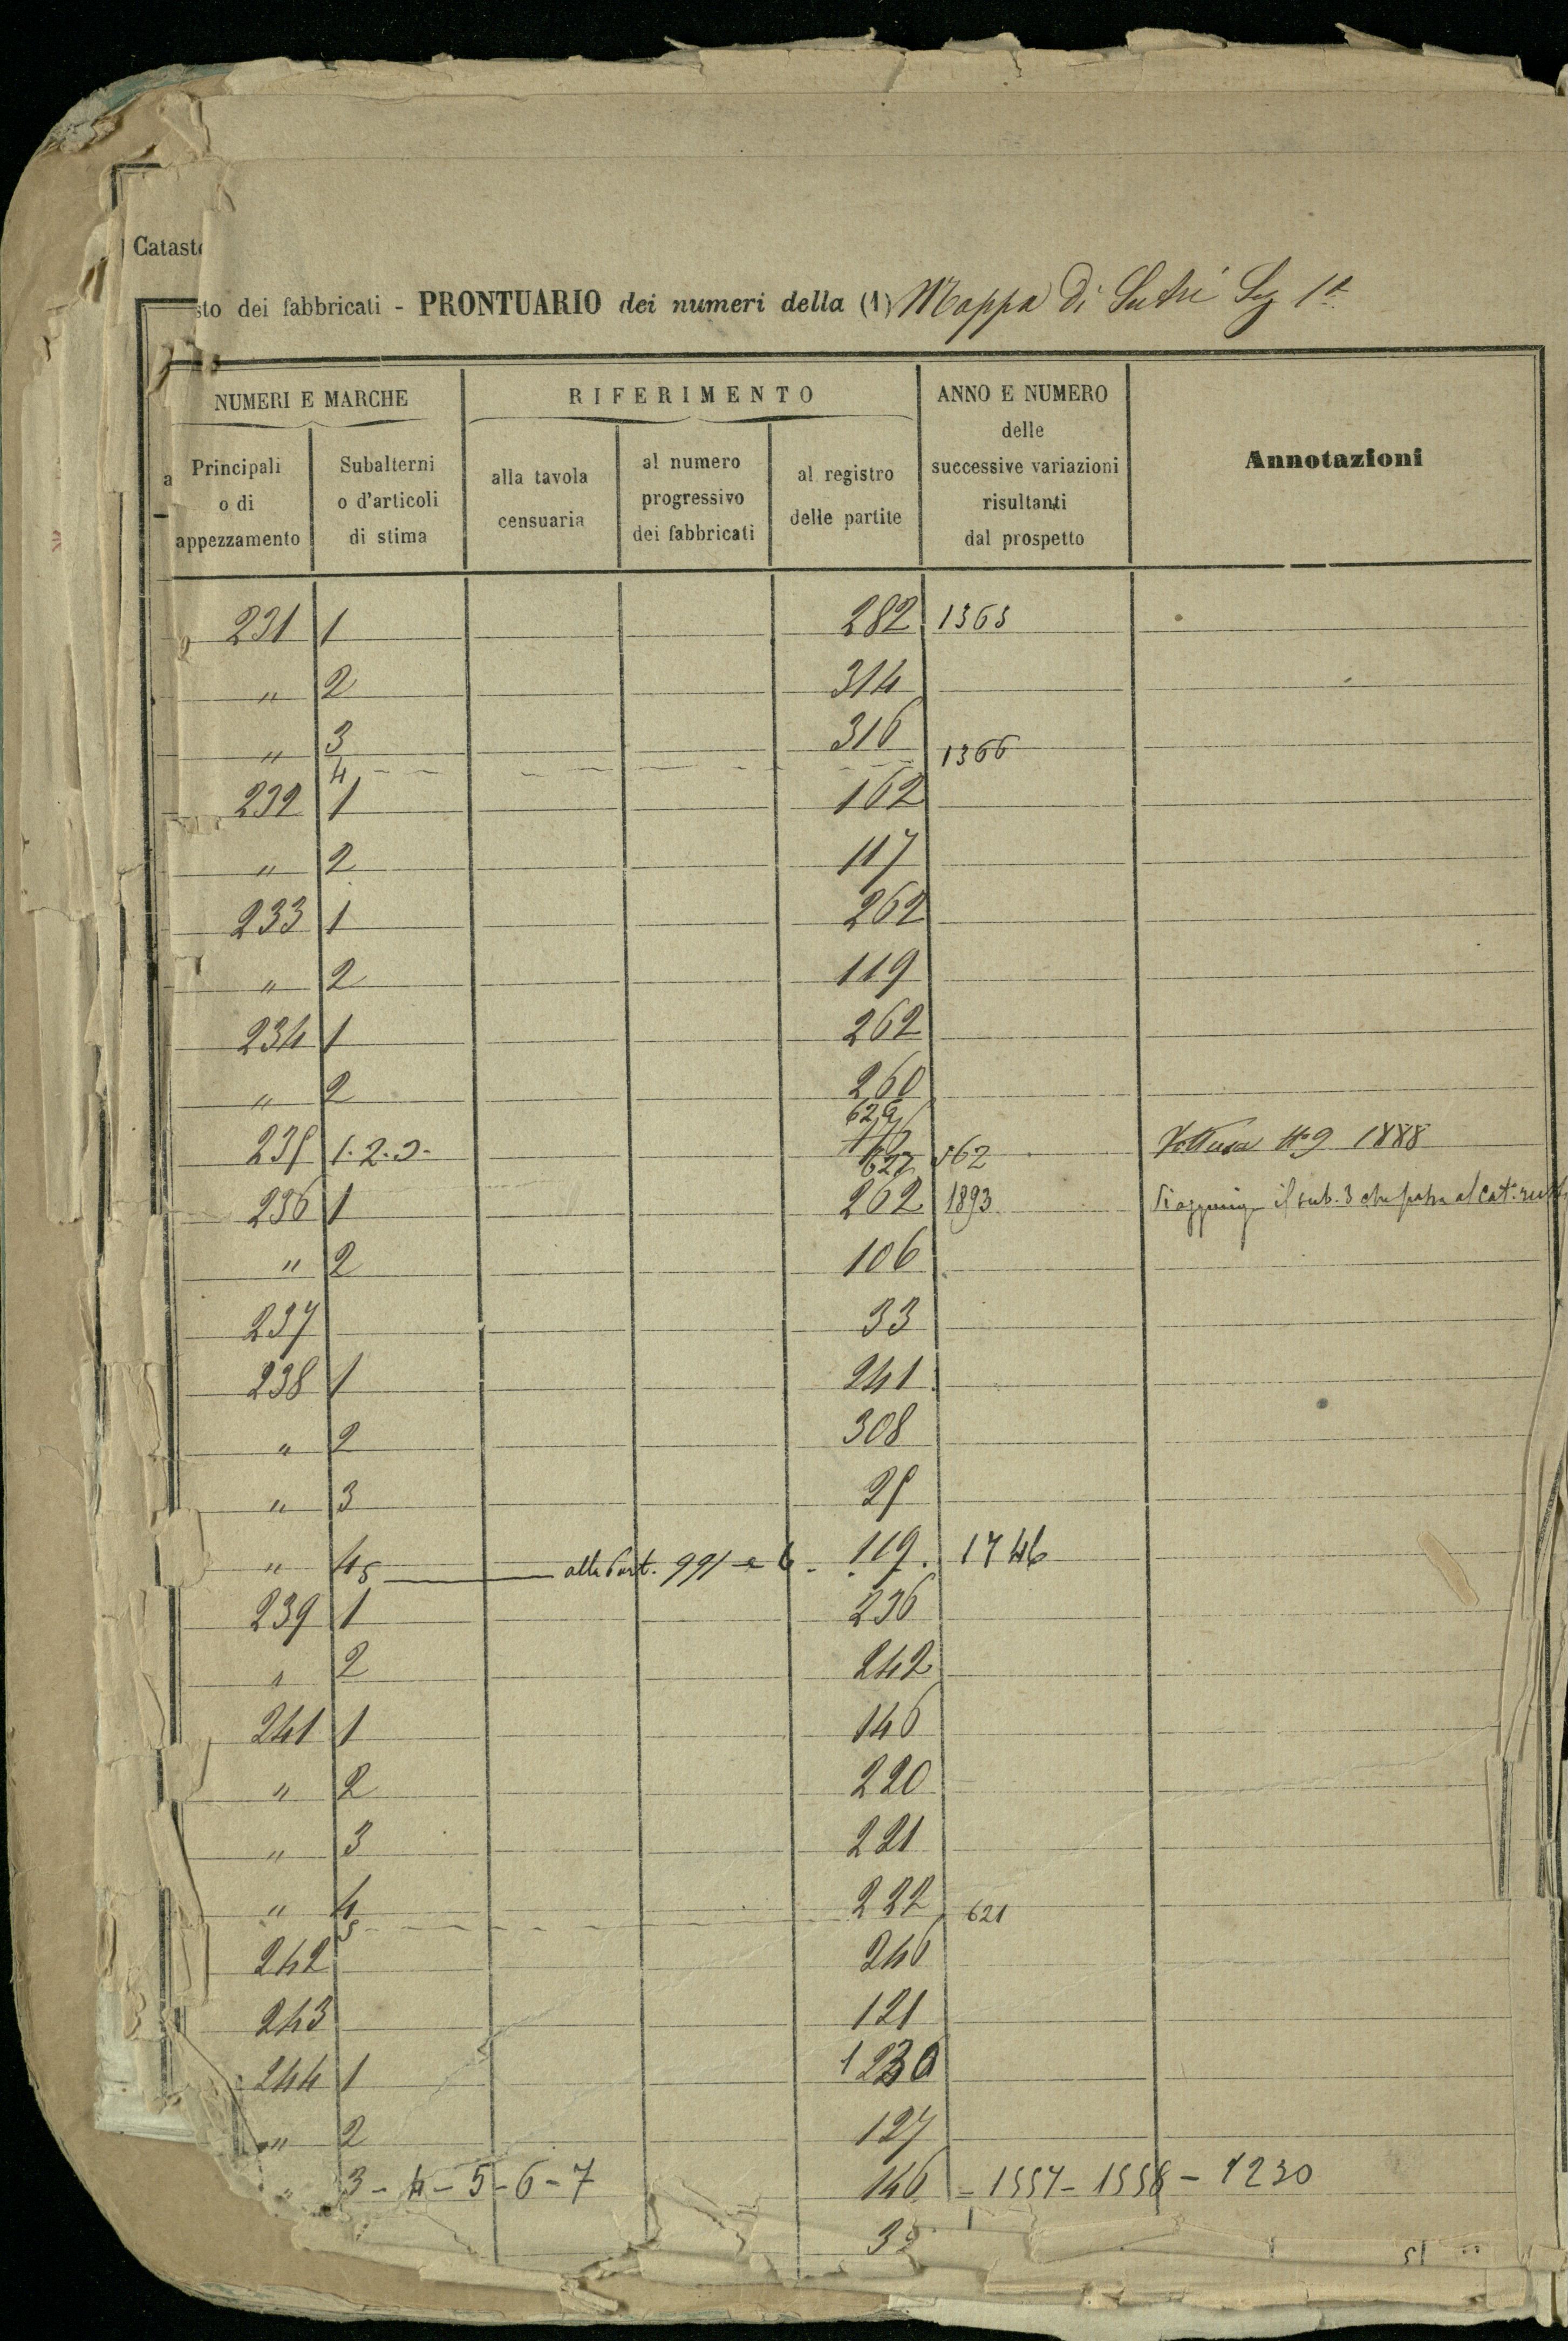 Catasto
sto dei fabbricati - PRONTUARIO dei numeri della (1) Mappa di Sutri Sez 1ª
NUMERI E MARCHE
RIFERIMENTO
ANNO E NUMERO
delle
successive variazioni
risultanti
dal prospetto
Annotazioni
a
Principali
o di
appezzamento
Subalterni
o d'articoli
di stima
alla tavola
censuaria
al numero
progressivo
dei fabbricati
al registro
delle partite
231 1 282 1363
" 2 314
" 3 316
4 1366
232 1 162
" 2 117
233 1 262
" 2 119
234 1 262
" 2 260
629
235 1.2.3. 562 1888
627
236 1 262 1893 Si aggiunge il sub. 3 che passa al cat. rust
" 2 106
237 33
238 1 241
" 2 308
" 3 25
" 4 119. 1746
5 alla Part. 991 e 6
239 1 236
" 2 242
241 1 146
" 2 220
" 3 221
" 4 222
5 621
242 246
243 121
244 1 1230
" 2 127
" 3-4-5-6-7 146 - 1557- 1558 - 1230